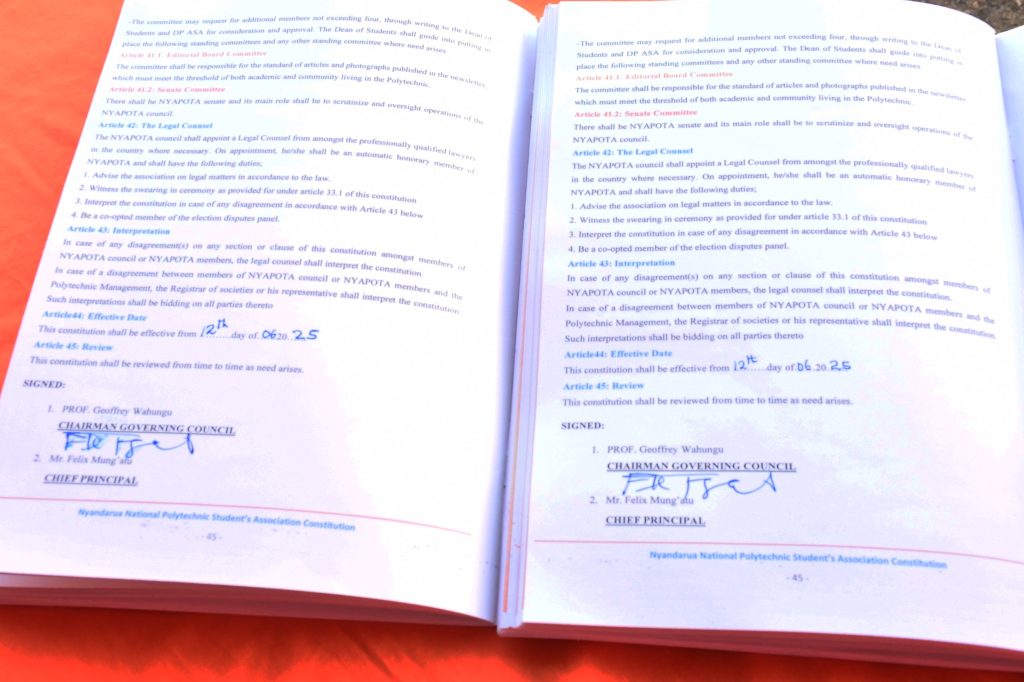 -The committee may request for additional members not exceeding four, through writing to the Dean of
Students and DP ASA for consideration and approval. The Dean of Students shall guide into putting in
place the following standing committees and any other standing committee where need arises.
Article 41.1: Editorial Board Committee
The committee shall be responsible for the standard of articles and photographs published in the newsletter
which must meet the threshold of both academic and community living in the Polytechnic.
Article 41.2: Senate Committee
There shall be NYAPOTA senate and its main role shall be to scrutinize and oversight operations of the
NYAPOTA council.
Article 42: The Legal Counsel
The NYAPOTA council shall appoint a Legal Counsel from amongst the professionally qualified lawyers
in the country where necessary. On appointment, he/she shall be an automatic honorary member of
NYAPOTA and shall have the following duties;
1. Advise the association on legal matters in accordance to the law.
2. Witness the swearing in ceremony as provided for under article 33.1 of this constitution
3. Interpret the constitution in case of any disagreement in accordance with Article 43 below
4. Be a co-opted member of the election disputes panel.
Article 43: Interpretation
In case of any disagreement(s) on any section or clause of this constitution amongst members of
NYAPOTA council or NYAPOTA members, the legal counsel shall interpret the constitution.
In case of a disagreement between members of NYAPOTA council or NYAPOTA members and the
Polytechnic Management, the Registrar of societies or his representative shall interpret the constitution.
Such interpretations shall be bidding on all parties thereto
Article44: Effective Date
This constitution shall be effective from 12th......day of.06.20..25
Article 45: Review
This constitution shall be reviewed from time to time as need arises.
SIGNED:
1. PROF. Geoffrey Wahungu
CHAIRMAN GOVERNING COUNCIL
2. Mr. Felix Mung'atu
CHIEF PRINCIPAL
Nyandarua National Polytechnic Student's Association Constitution
-45-
-The committee may request for additional members not exceeding four, through writing to the Dean of
Students and DP ASA for consideration and approval. The Dean of Students shall guide into putting in
place the following standing committees and any other standing committee where need arises.
Article 41.1: Editorial Board Committee
The committee shall be responsible for the standard of articles and photographs published in the newsletter
which must meet the threshold of both academic and community living in the Polytechnic.
Article 41.2: Senate Committee
There shall be NYAPOTA senate and its main role shall be to scrutinize and oversight operations of the
NYAPOTA council.
Article 42: The Legal Counsel
The NYAPOTA council shall appoint a Legal Counsel from amongst the professionally qualified lawyers
in the country where necessary. On appointment, he/she shall be an automatic honorary member of
NYAPOTA and shall have the following duties;
1. Advise the association on legal matters in accordance to the law.
2. Witness the swearing in ceremony as provided for under article 33.1 of this constitution
3. Interpret the constitution in case of any disagreement in accordance with Article 43 below
4. Be a co-opted member of the election disputes panel.
Article 43: Interpretation
In case of any disagreement(s) on any section or clause of this constitution amongst members of
NYAPOTA council or NYAPOTA members, the legal counsel shall interpret the constitution.
In case of a disagreement between members of NYAPOTA council or NYAPOTA members and the
Polytechnic Management, the Registrar of societies or his representative shall interpret the constitution.
Such interpretations shall be bidding on all parties thereto
Article44: Effective Date
This constitution shall be effective from 12th......day of.06.20..25
Article 45: Review
This constitution shall be reviewed from time to time as need arises.
SIGNED:
1. PROF. Geoffrey Wahungu
CHAIRMAN GOVERNING COUNCIL
2. Mr. Felix Mung'atu
CHIEF PRINCIPAL
Nyandarua National Polytechnic Student's Association Constitution
-45-